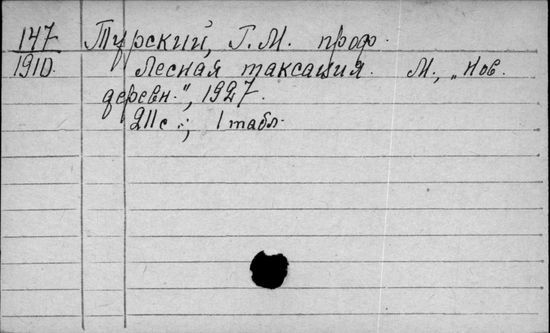 147 Турский, Г.М. проф.
1910. Лесная таксация. М., „Нов.
деревн.", 1927.
211 с.; 1 табл.